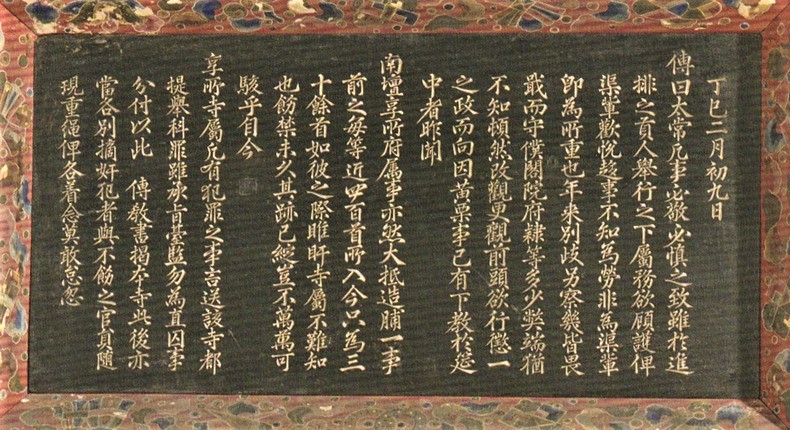 丁巳二月初九日
傳曰太常凡事必敬必慎之致雖於進
排之貢人舉行之下屬務欲顧護俾
渠輩歡悅趍事不知為勞非為渠輩
卽為所重也年來別歧另察幾皆畏
戢而守僕闕院府隸等多少獘端猶
不知頓然改觀更觀前頭欲行懲一
之政而向因黃票事已有下教於筵
中者昨聞
南壇享所府屬事亦然大抵造脯一事
前之每等近四百首所入今只為三
十餘首如彼之際睢盱寺屬不難知
也飭禁未久其跡已綻豈不萬萬可
駭乎自今
享所寺屬凡有犯罪之事言送該寺都
提舉科罪雖承旨臺監勿為直囚事
分付以此 傳敎書揭本寺此後亦
當各別摘奸犯者與不飭之官員隨
現重繩俾各着念莫敢怠忽